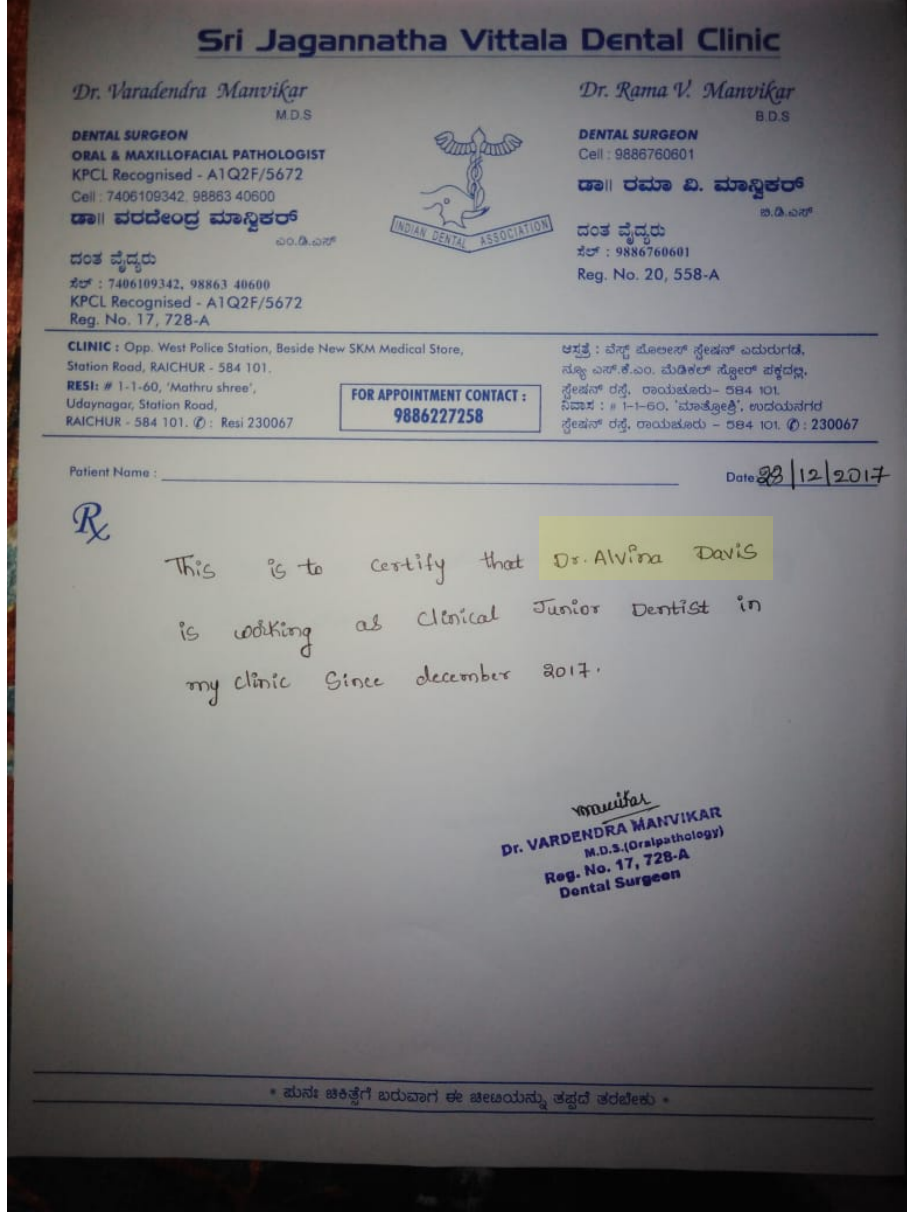 Sri Jagannatha Vittala Dental Clinic
Dr. Varadendra Manvikar
M.D.S
DENTAL SURGEON
ORAL & MAXILLOFACIAL PATHOLOGIST
KPCL Recognised - A1Q2F/5672
Cell : 7406109342, 98863 40600
ಡಾ|| ವರದೇಂದ್ರ ಮಾನ್ವಿಕರ್
ಎಂ.ಡಿ.ಎಸ್
ದಂತ ವೈದ್ಯರು
ಸೆಲ್ : 7406109342, 98863 40600
KPCL Recognised - A1Q2F/5672
Reg. No. 17, 728-A
INDIAN DENTAL ASSOCIATION
Dr. Rama V. Manvikar
B.D.S
DENTAL SURGEON
Cell : 9886760601
ಡಾ|| ರಮಾ ವಿ. ಮಾನ್ವಿಕರ್
ಬಿ.ಡಿ.ಎಸ್
ದಂತ ವೈದ್ಯರು
ಸೆಲ್ : 9886760601
Reg. No. 20, 558-A
CLINIC : Opp. West Police Station, Beside New SKM Medical Store,
Station Road, RAICHUR - 584 101.
RESI: # 1-1-60, 'Mathru shree',
Udaynagar, Station Road,
RAICHUR - 584 101. ✆ : Resi 230067
FOR APPOINTMENT CONTACT :
9886227258
ಆಸ್ಪತ್ರೆ : ವೆಸ್ಟ್ ಪೊಲೀಸ್ ಸ್ಟೇಷನ್ ಎದುರುಗಡೆ,
ನ್ಯೂ ಎಸ್.ಕೆ.ಎಂ. ಮೆಡಿಕಲ್ ಸ್ಟೋರ್ ಪಕ್ಕದಲ್ಲಿ,
ಸ್ಟೇಷನ್ ರಸ್ತೆ, ರಾಯಚೂರು- 584 101.
ನಿವಾಸ : # 1-1-60, 'ಮಾತೃಶ್ರೀ', ಉದಯನಗರ
ಸ್ಟೇಷನ್ ರಸ್ತೆ, ರಾಯಚೂರು - 584 101. ✆ : 230067
Patient Name :
Date 28/12/2017
Rx
This is to certify that Dr. Alvina Davis
is working as Clinical Junior Dentist in
my clinic Since december 2017.
manvikar
Dr. VARDENDRA MANVIKAR
M.D.S.(Oralpathology)
Reg. No. 17, 728-A
Dental Surgeon
* ಪುನಃ ಚಿಕಿತ್ಸೆಗೆ ಬರುವಾಗ ಈ ಚೀಟಿಯನ್ನು ತಪ್ಪದೆ ತರಬೇಕು *